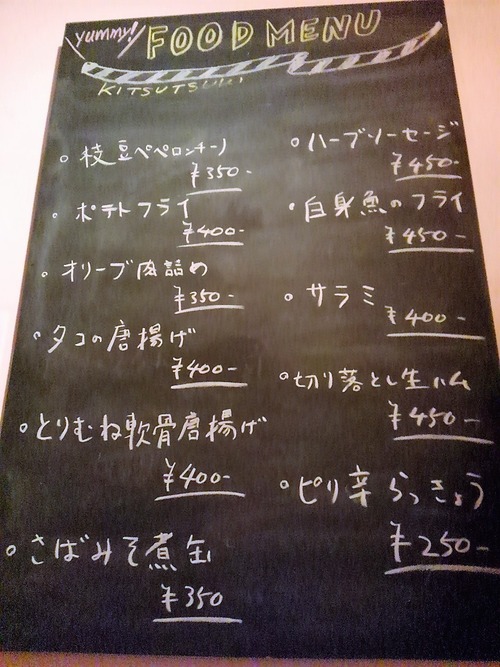 yummy!
FOOD MENU
KITSUTSUKI
○枝豆ペペロンチーノ
¥350-
・ポテトフライ
¥400-
○オリーブ肉詰め
¥350-
・タコの唐揚げ
¥400-
○とりむね軟骨唐揚げ
¥400-
○さばみそ煮缶
¥350
○ハーブソーセージ
¥450-
・白身魚のフライ
¥450-
○サラミ
¥400-
○切り落とし生ハム
¥450-
○ピリ辛らっきょう
¥250-